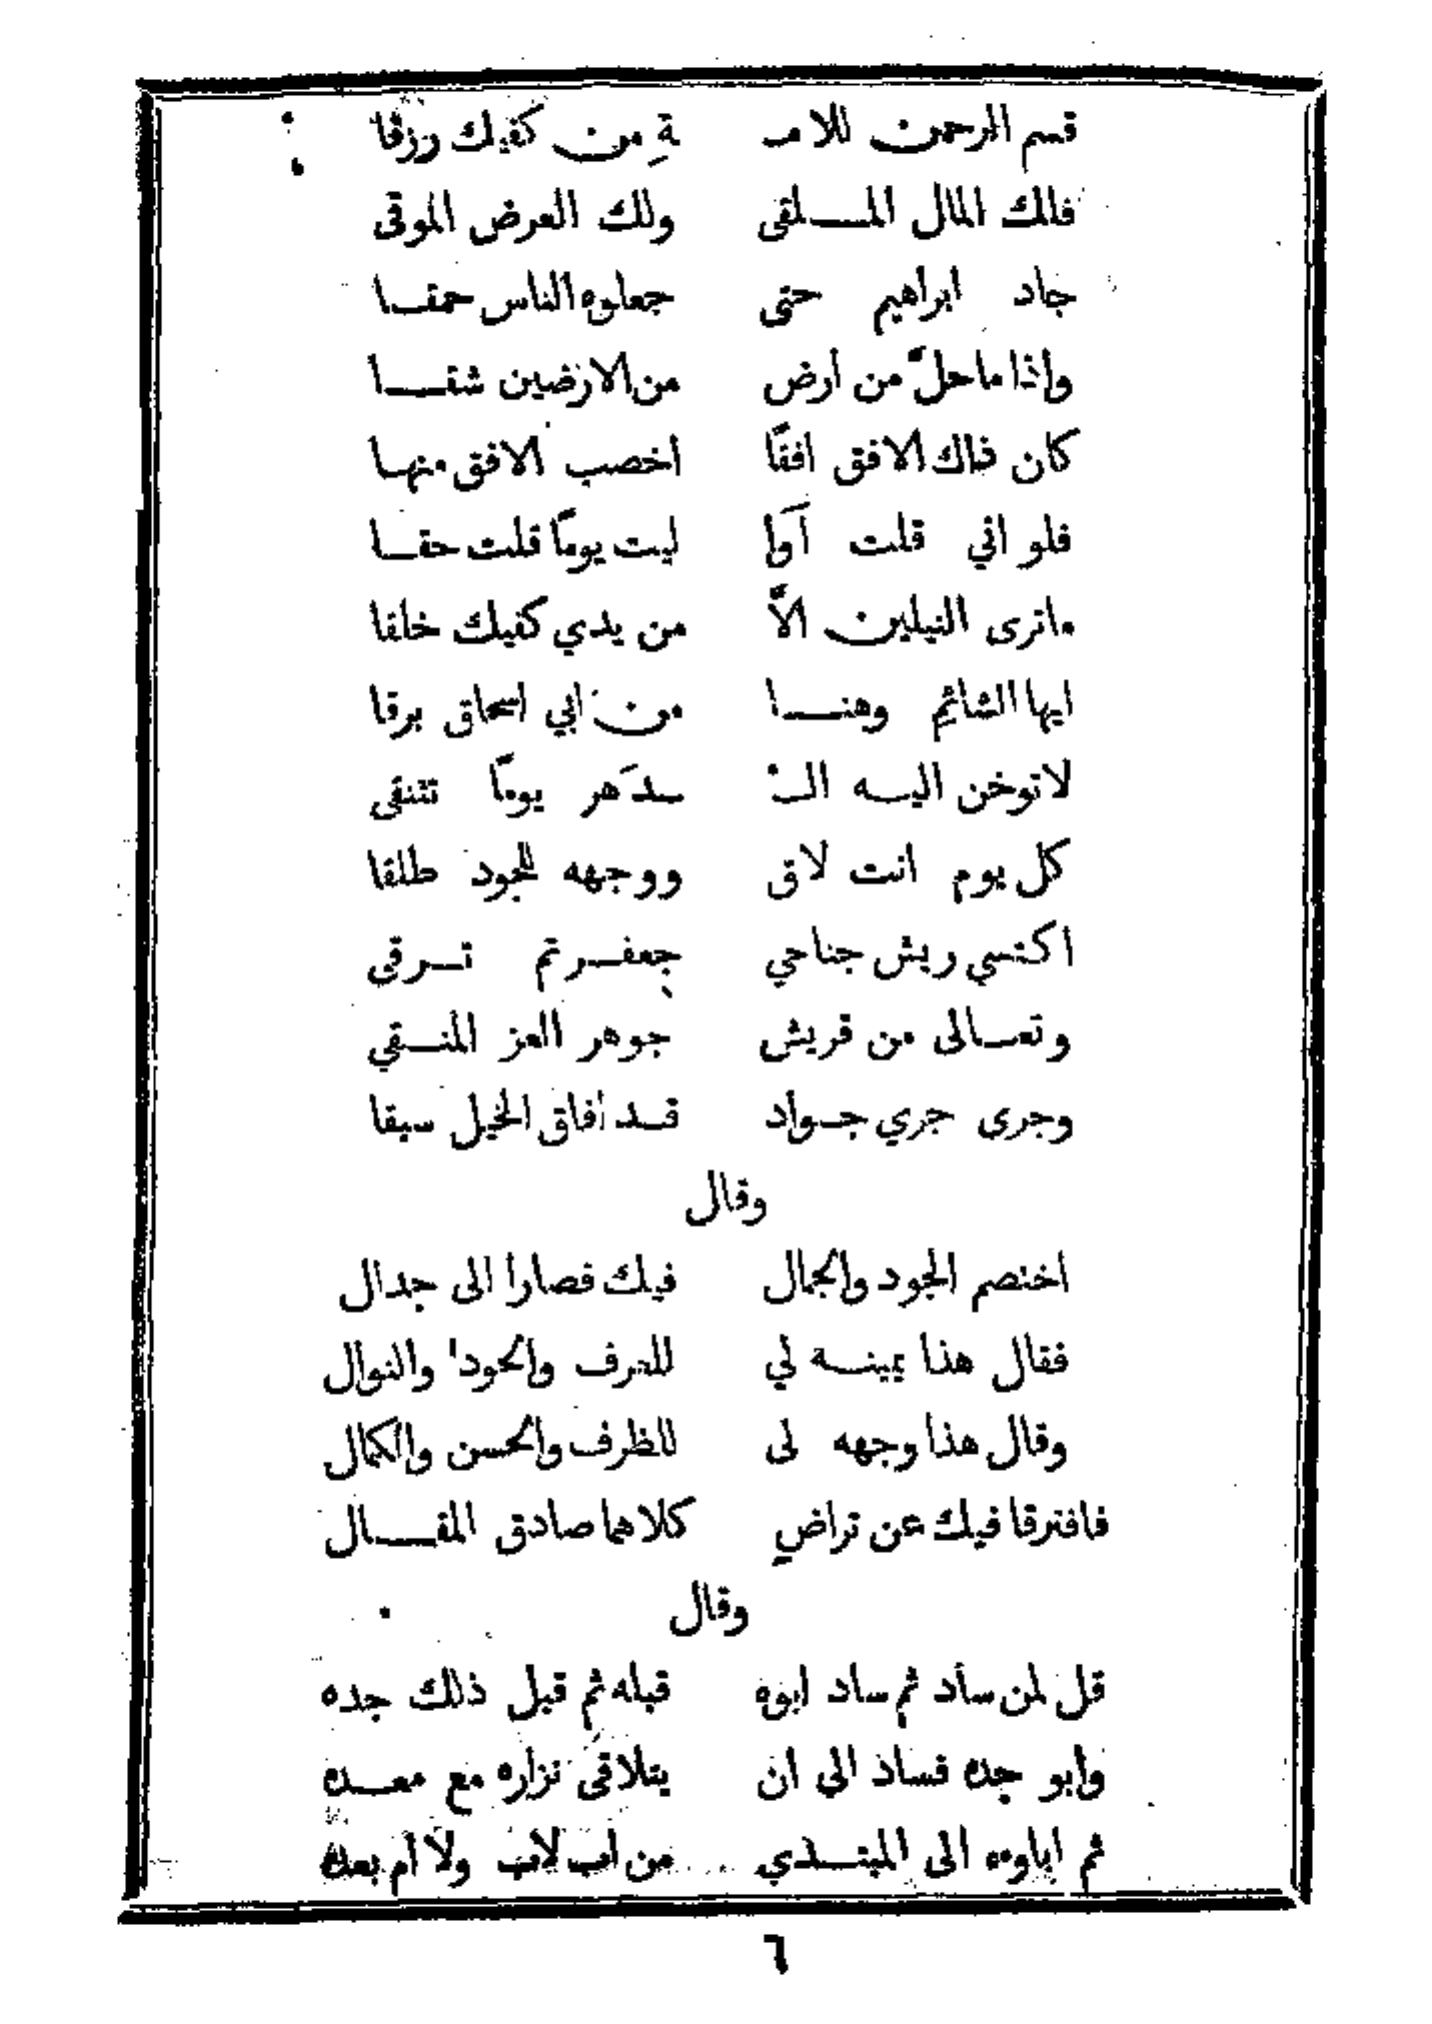 قسم الرحمن للامـ ـةِ من كفيك رزقا
فلك المال الملقى ولك العرض الموقى
جاد ابراهيم حتى جعلوه الناس حمقا
واذا ما حلَّ من أرض من الارضين شقا
كان ذاك الافق افقًا اخصب الافق منها
فلو اني قلت آوا ليت يومًا قلت حقا
ما نرى النيلين الاَّ من يدي كفيك خلقا
ايها الشائم وهنا من ابي اسحاق برقا
لا توخن اليه الـ ـدَهر يومًا تتنقى
كل يوم انت لاق ووجهه للجود طلقا
اكتسي ريش جناحي جعفر ثم ترقى
وتعالى من قريش جوهر العز المنقي
وجرى جري جواد قد أفاق الخيل سبقا
وقال
اختصم الجود والجمال فيك فصارا الى جدال
فقال هذا يمينه لي للعرف والجود والنوال
وقال هذا وجهه لى للظرف والحسن والكمال
فافترقا فيك عن تراضٍ كلاهما صادق المقال
وقال
قل لمن ساد ثم ساد ابوه قبله ثم قبل ذلك جده
وابو جده فساد الى ان يتلاقى نزاره مع معده
ثم اباوه الى المبتدي من اب لاب ولا ام بعده
٦